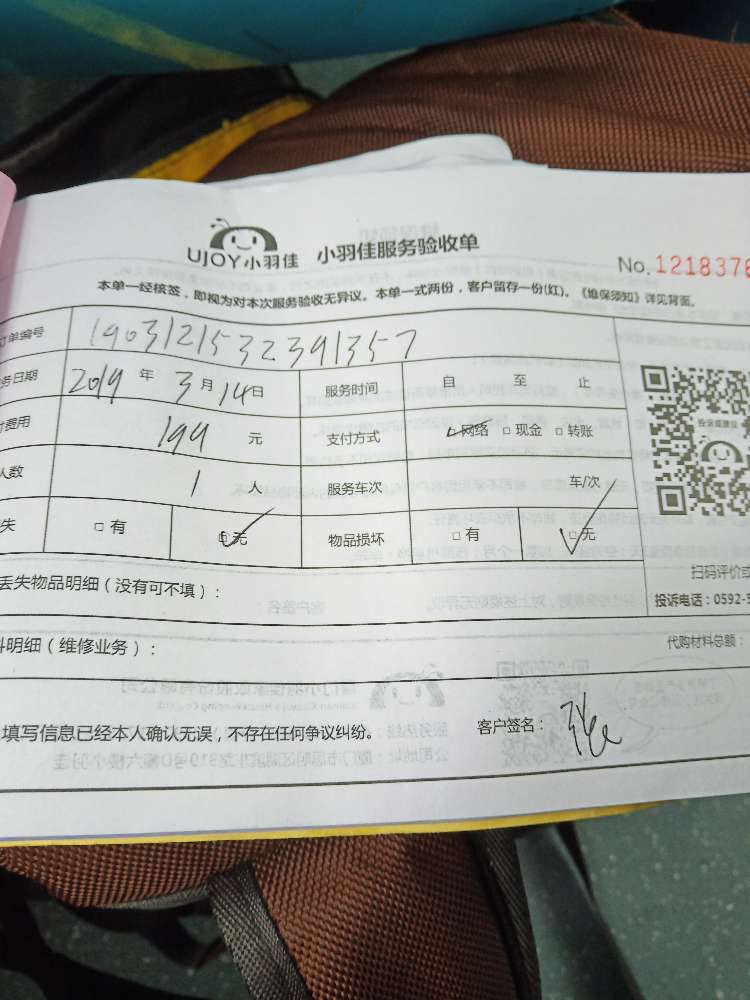 UJOY小羽佳 小羽佳服务验收单
No. 1218376
本单一经核签，即视为对本次服务验收无异议。本单一式两份，客户留存一份(红)。《维保须知》详见背面。
订单编号 1903121532391357
务日期 2019 年 3 月 14 日 服务时间 自 至 止
费用 199 元 支付方式 网络 □ 现金 □ 转账
人数 1 人 服务车次 车/次
失 □ 有 □ 无 物品损坏 □ 有 □ 无
投诉或建议
扫码评价或
丢失物品明细（没有可不填）：
投诉电话：0592-5
料明细（维修业务）：
代购材料总额：
填写信息已经本人确认无误，不存在任何争议纠纷。 客户签名：